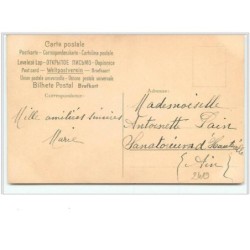 Carte postale
Postkarte - Correspondenzkarte - Cartolina postale
Levelező-Lap - ОТКРЫТОЕ ПИСЬМО - Dopisnice
Post card - Weltpostverein - Briefkaart
Union postale universelle - Union postale universale
Bilhete Postal Brefkort
Correspondance
Adresse
Mille amitiés sincères
Marie
Mademoiselle
Antoinette Pain
Sanatorium d'Hauteville
Ain